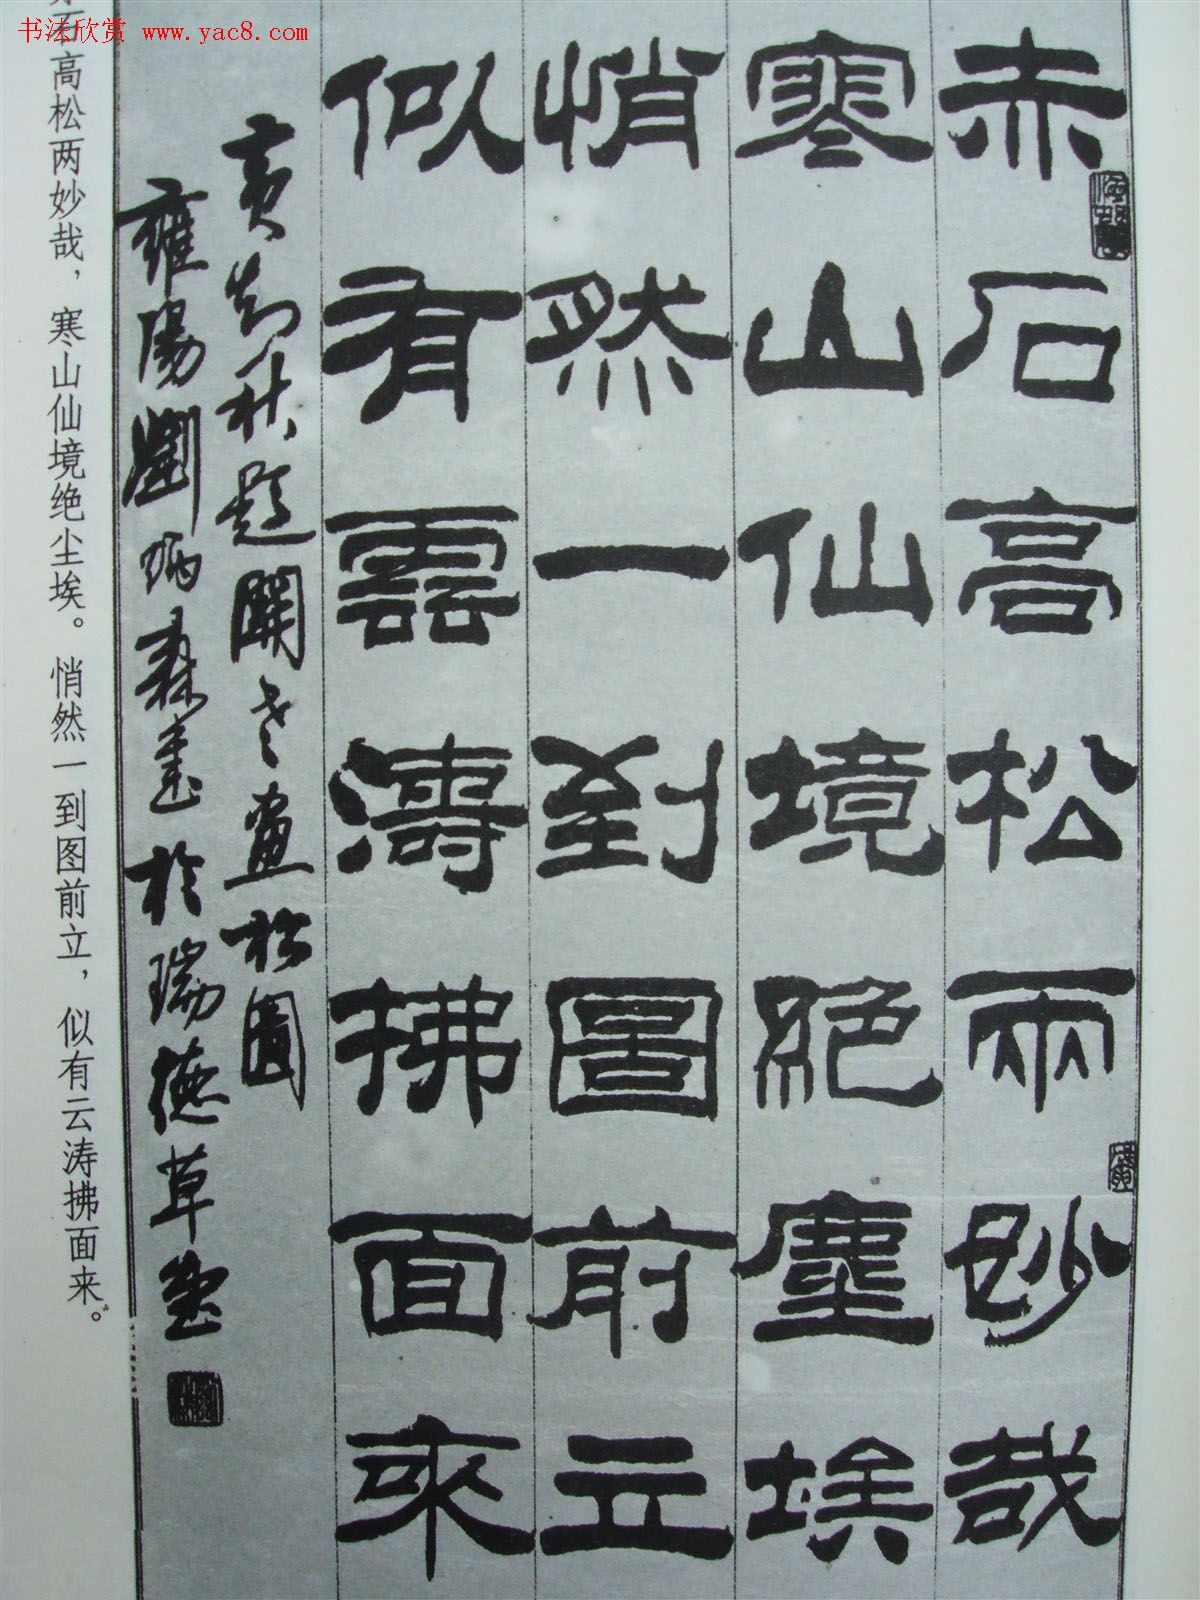 书法欣赏 www.yac8.com
赤石高松两妙哉
寒山仙境絕塵埃
悄然一到圖前立
似有雲濤拂面來
黄知秋題關老畫松圖
雍陽劉炳森書於瑞德草堂
石高松两妙哉，寒山仙境绝尘埃。悄然一到图前立，似有云涛拂面来。